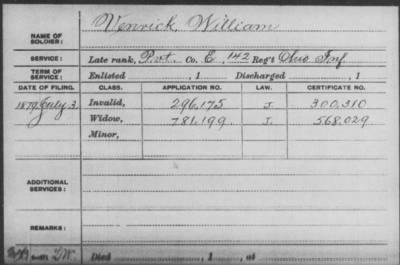 NAME OF SOLDIER: Venrick, William
SERVICE: Late rank, Pvt. Co. E, 142 Reg't Ohio Inf.
TERM OF SERVICE: Enlisted , 1 Discharged , 1
DATE OF FILING. CLASS. APPLICATION NO. LAW. CERTIFICATE NO.
1879 July 3. Invalid, 296,175 J. 300,310
Widow, 781,199 J. 568,029
Minor,
ADDITIONAL SERVICES:
REMARKS:
Died , 1 , at